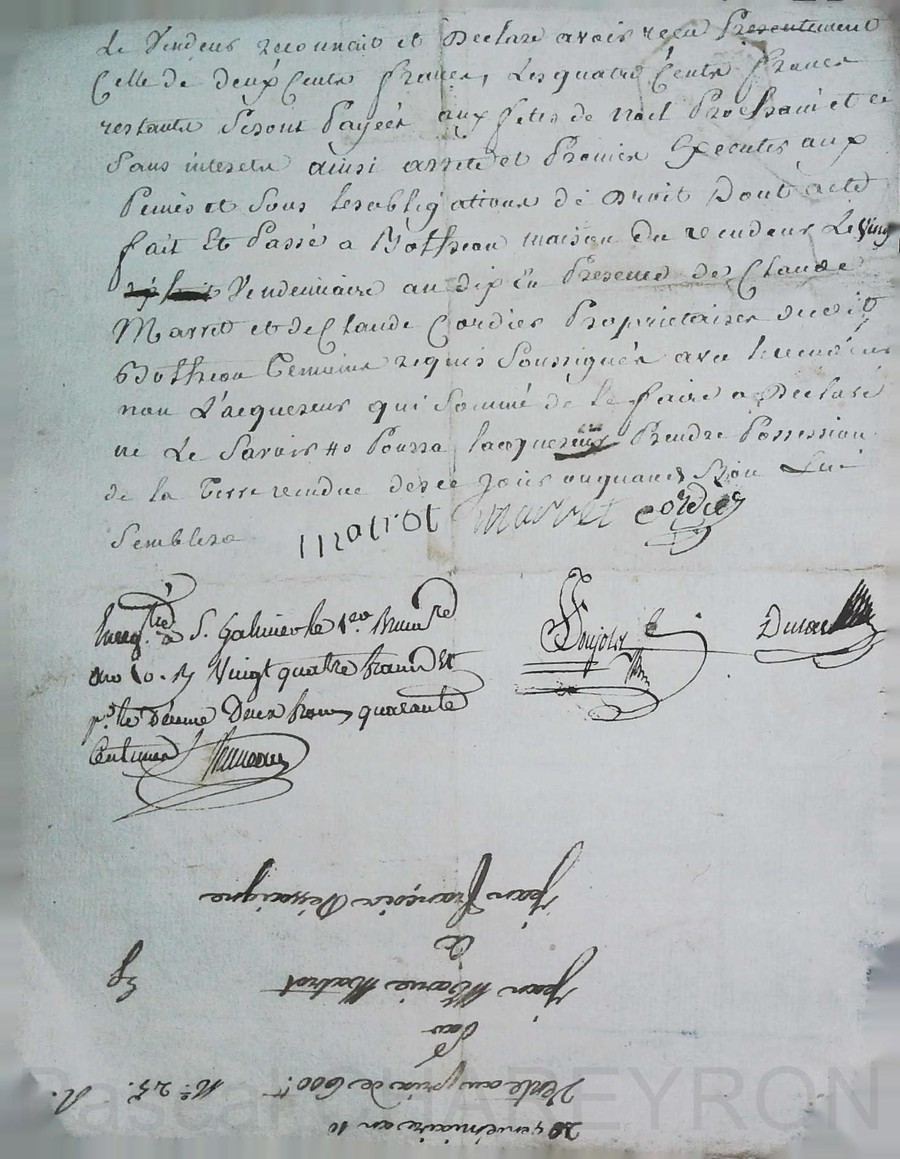 Le Vendeur reconnait et Déclare avoir reçu Présentement
Celle de deux Cents francs, Les quatre Cents francs
restants Seront Payées aux fetes de noel Prochain et ce
Sans interets ainsi arreté et Promis Executer aux
Peines et Sous les obligations de Droit Dont acte
fait Et Passé a Botheon maison du vendeur Le Ving
Vendemiaire an dix En Presence de Claude
Marret et de Claude Cordier Proprietaires dudit
Botheon Temoins requis Soussignés avec le vendeur
non L'acquereur qui Sommé de le faire a Declaré
ne Le Savoir Pourra lacquereur Prendre Possession
de la Terre vendue des ce jour ou quand Bon Lui
Semblera
matrot marret cordier
Enregtré à S. Galmier le 1er Brumre
an 10. Vingt quatre francs Et
pr le Décime Deux francs quarante
Centimes
20 vendémiaire an 10
Vente au prix de 600tt N° 25.
Par
Jean Marie Matrot
a
Jean François Dessaigne
Pascal CHAREYRON